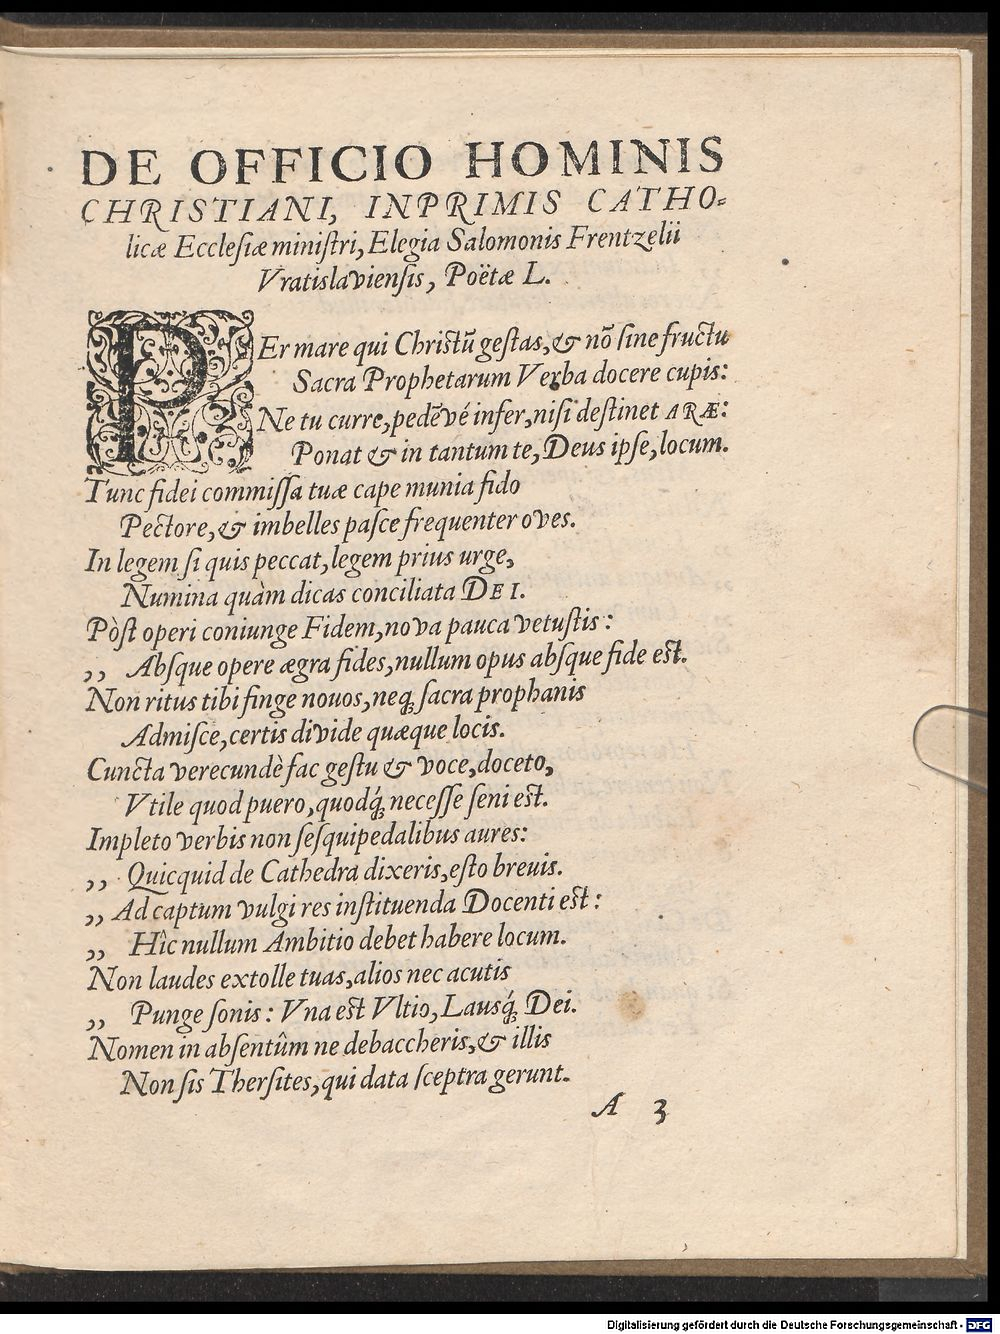 DE OFFICIO HOMINIS
CHRISTIANI, INPRIMIS CATHO-
licæ Ecclesiæ ministri, Elegia Salomonis Frentzelii
Vratislaviensis, Poëtæ L.
PEr mare qui Christũ gestas, & nõ sine fructu
Sacra Prophetarum Verba docere cupis:
Ne tu curre, pedẽvé infer, nisi destinet ARÆ:
Ponat & in tantum te, Deus ipse, locum.
Tunc fidei commissa tuæ cape munia fido
Pectore, & imbelles pasce frequenter oves.
In legem si quis peccat, legem prius urge,
Numina quàm dicas conciliata DEI.
Pòst operi coniunge Fidem, nova pauca vetustis:
,, Absque opere ægra fides, nullum opus absque fide est.
Non ritus tibi finge nouos, neq; sacra prophanis
Admisce, certis divide quæque locis.
Cuncta verecundè fac gestu & voce, doceto,
Vtile quod puero, quodq́; necesse seni est.
Impleto verbis non sesquipedalibus aures:
,, Quicquid de Cathedra dixeris, esto breuis.
,, Ad captum vulgi res instituenda Docenti est:
,, Hîc nullum Ambitio debet habere locum.
Non laudes extolle tuas, alios nec acutis
,, Punge sonis: Vna est Vltio, Lausq́; Dei.
Nomen in absentûm ne debaccheris, & illis
Non sis Thersites, qui data sceptra gerunt.
A 3
Digitalisierung gefördert durch die Deutsche Forschungsgemeinschaft - DFG